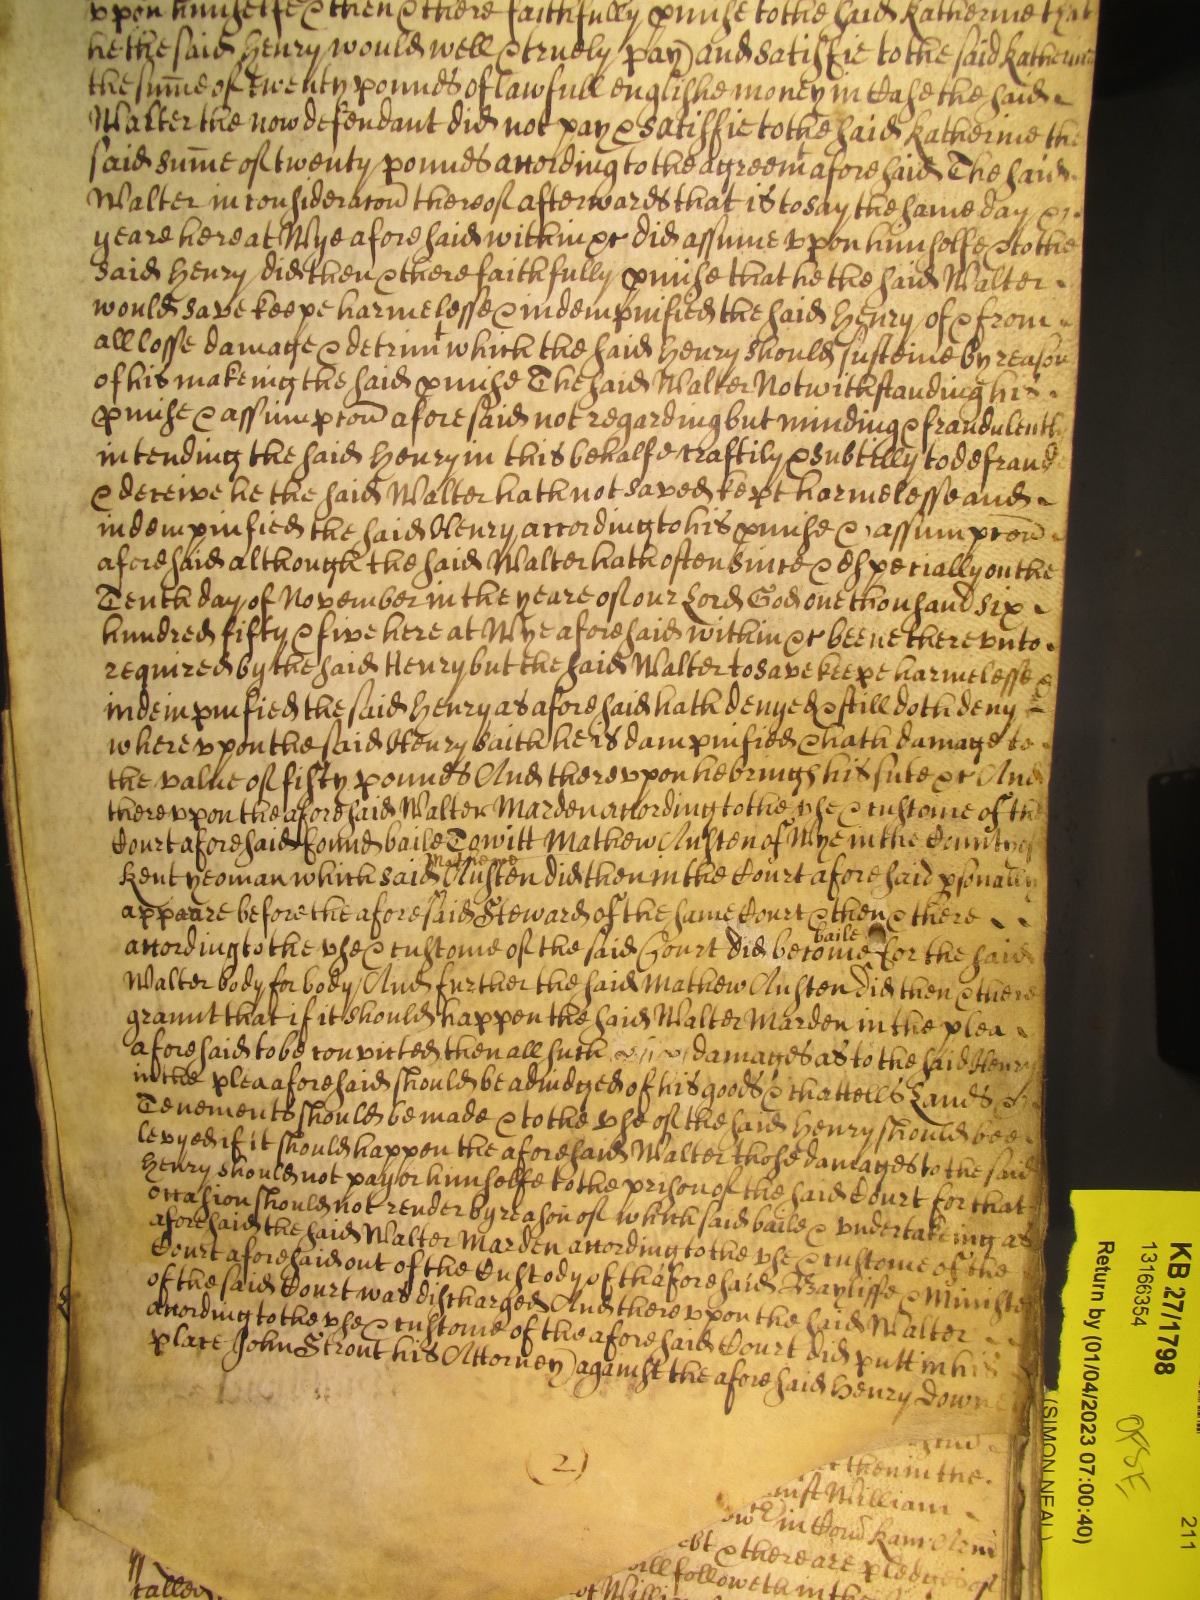 vppon himselfe & then & there faithfully pmise to the said Katherine that
he the said Henry would well & truely pay and satisfie to the said Katherine
the sum̄e of twenty pounds of lawfull englishe money in Case the said
Walter the now defendant did not pay & satisfie to the said Katherine the
said sum̄e of twenty pounds according to the agreemt aforesaid The said
Walter in consideracon̄ thereof afterwards that is to say the same day &
yeare here at Wye aforesaid within &c did assume vpon himselfe & to the
said Henry did then & there faithfully pmise that he the said Walter
would save keepe harmelesse & indempnified the said Henry of & from
all losse damage & detrimt which the said Henry should susteine by reason
of his makeing the said pmise The said Walter Notwithstanding his
pmise & assumpcon̄ aforesaid not regarding but minding & fraudulently
intending the said Henry in this behalfe craftily & subtilly to defraud
& deceive he the said Walter hath not saved kept harmelesse and
indempnified the said Henry according to his pmise & assumpcon̄
aforesaid although the said Walter hath often since & especially on the
Tenth day of November in the yeare of our Lord God one thousand six
hundred fifty & five here at Wye aforesaid within &c beene therevnto
required by the said Henry but the said Walter to save keepe harmelesse &
indempnified the said Henry as aforesaid hath denyed & still doth deny
wherevpon the said Henry saith he is dampnified & hath damage to
the value of fifty pounds And therevpon he brings his sute &c And
therevpon the aforesaid Walter Marden according to the vse & custome of the
Court aforesaid found baile Towitt Mathew Austen of Wye in the County of
Kent yeoman which said Mathewe Austen did then in the Court aforesaid psonally
appeare before the aforesaid Steward of the same Court & then & there
according to the vse & custome of the said Court did become baile for the said
Walter body for body And further the said Mathew Austen did then & there
graunt that if it should happen the said Walter Marden in the plea
aforesaid to be convicted then all such damages as to the said Henry
in the plea aforesaid should be adiudged of his goods & chattells Lands &
Tenements should be made & to the vse of the said Henry should bee
levyed if it should happen the aforesaid Walter those damages to the said
Henry should not pay or himselfe to the prison of the said Court for that
occasion should not render by reason of which said baile & vndertakeing as
aforesaid the said Walter Marden according to the vse & custome of the
Court aforesaid out of the Custody of thaforesaid Bayliffe & Minister
of the said Court was discharged And therevpon the said Walter
according to the vse & custome of the aforesaid Court did putt in his
place John Strout his Attorney against the aforesaid Henry Downe
(2)
then in the
William
& there are pledges of
will followeth in the
of William
called
KB 27/1798
13166354
Return by (01/04/2023 07:00:40)
(SIMON NEAL)
211